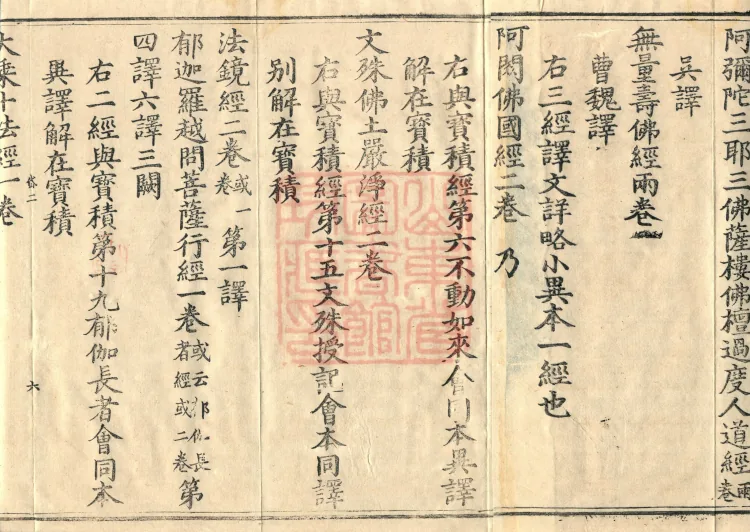 阿彌陀三耶三佛薩樓佛檀過度人道經兩卷
吳譯
無量壽佛經兩卷
曹魏譯
右三經譯文詳略小異本一經也
阿閦佛國經二卷 乃
右與寶積經第六不動如來會同本異譯
解在寶積
文殊佛土嚴淨經二卷
右與寶積經第十五文殊授記會本同譯
别解在寶積
法鏡經二卷或一卷 第一譯
郁迦羅越問菩薩行經一卷或云郁伽長者經或二卷 第
四譯六譯三闕
右二經與寶積第十九郁伽長者會同本
異譯解在寶積
岱二
六
大乘十法經一卷